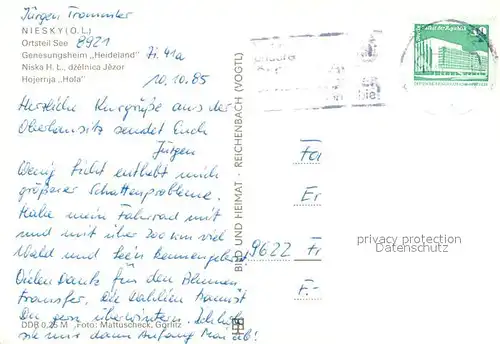 Jürgen Trommler
NIESKY (O. L.)
Ortsteil See 8921
Genesungsheim „Heideland" Zi. 41a
Niska H. L., dźělnica Jězor
Hojernja „Hola" 10.10.85
Herzliche Kurgrüße aus der
Oberlausitz sendet Euch
Jürgen
Wenig Licht enthebt mich
größerer Schattenprobleme.
Habe mein Fahrrad mit
und mit über 200 km viel
Wald und Seen kennengelernt.
Vielen Dank für den Blumen
transfer, die Dahlien kannst
Du gern überwintern. Ich
sie mir dann Anfang Mai ab!
DDR 0,25 M Foto: Mattuscheck, Görlitz
BILD UND HEIMAT · REICHENBACH (VOGTL)
Fa
Er
9622 Fr
F.-
privacy protection
Datenschutz